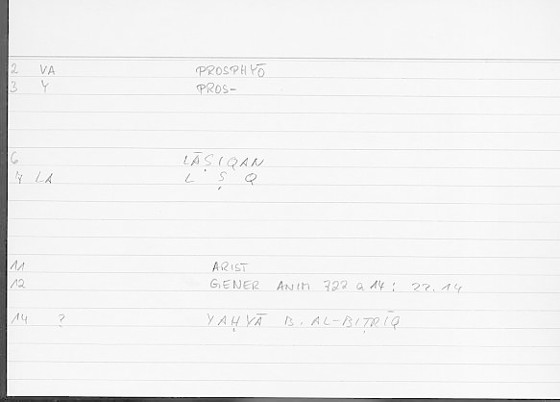 2 VA PROSPHYŌ
3 Y PROS-
6 LĀṢIQAN
7 LA L Ṣ Q
11 ARIST
12 GENER ANIM 722 a 14 : 22.14
14 ? YAḤYĀ B. AL-BIṬRĪQ